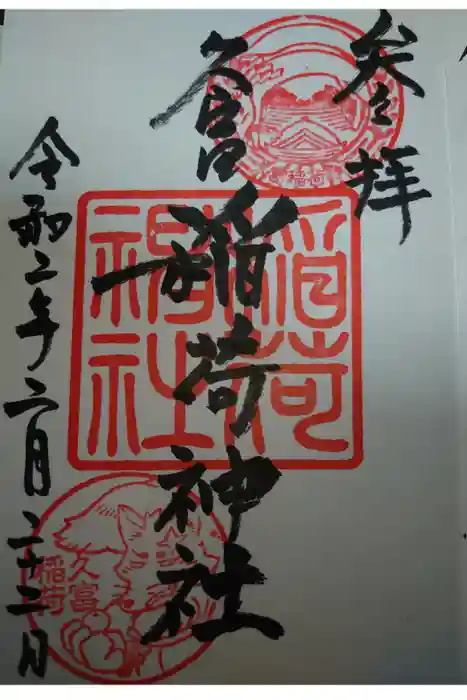 参拝
久富
稲荷神社
令和二年二月二十二日
稲荷
神社
稲荷
久富
稲荷